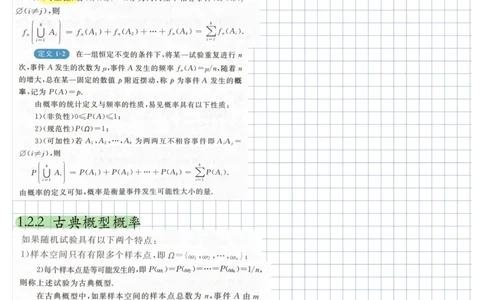 ∅(i≠j),则
fₙ(⋃ᵢ₌₁ᵏ Aᵢ) = fₙ(A₁)+fₙ(A₂)+⋯+fₙ(Aₖ) = ∑ᵢ₌₁ᵏ fₙ(Aᵢ).
定义 1-2 在一组恒定不变的条件下,将某一试验重复进行 n
次,事件 A 发生的次数为 μ,事件 A 发生的频率 fₙ(A)=μ/n,随着 n
的增大,总在某一固定的数值 p 附近摆动,称 p 为事件 A 发生的概
率,记为 P(A)=p.
由概率的统计定义与频率的性质,易见概率具有以下性质:
1)(非负性)0≤P(A)≤1;
2)(规范性)P(Ω)=1;
3)(可加性)若 A₁,A₂,⋯,Aₖ 为两两互不相容事件即 AᵢAⱼ=
∅(i≠j),则
P(⋃ᵢ₌₁ᵏ Aᵢ) = P(A₁)+P(A₂)+⋯+P(Aₖ) = ∑ᵢ₌₁ᵏ P(Aᵢ).
由概率的定义可知,概率是衡量事件发生可能性大小的量.
1.2.2 古典概型概率
如果随机试验具有以下两个特点:
1)样本空间只有有限多个样本点,即 Ω={ω₁,ω₂,⋯,ωₙ};
2)每个样本点是等可能发生的,即 P(ω₁)=P(ω₂)=⋯=P(ωₙ)=1/n,
则称上述试验为古典概型.
在古典概型中,如果样本空间的样本点总数为 n,事件 A 由 m